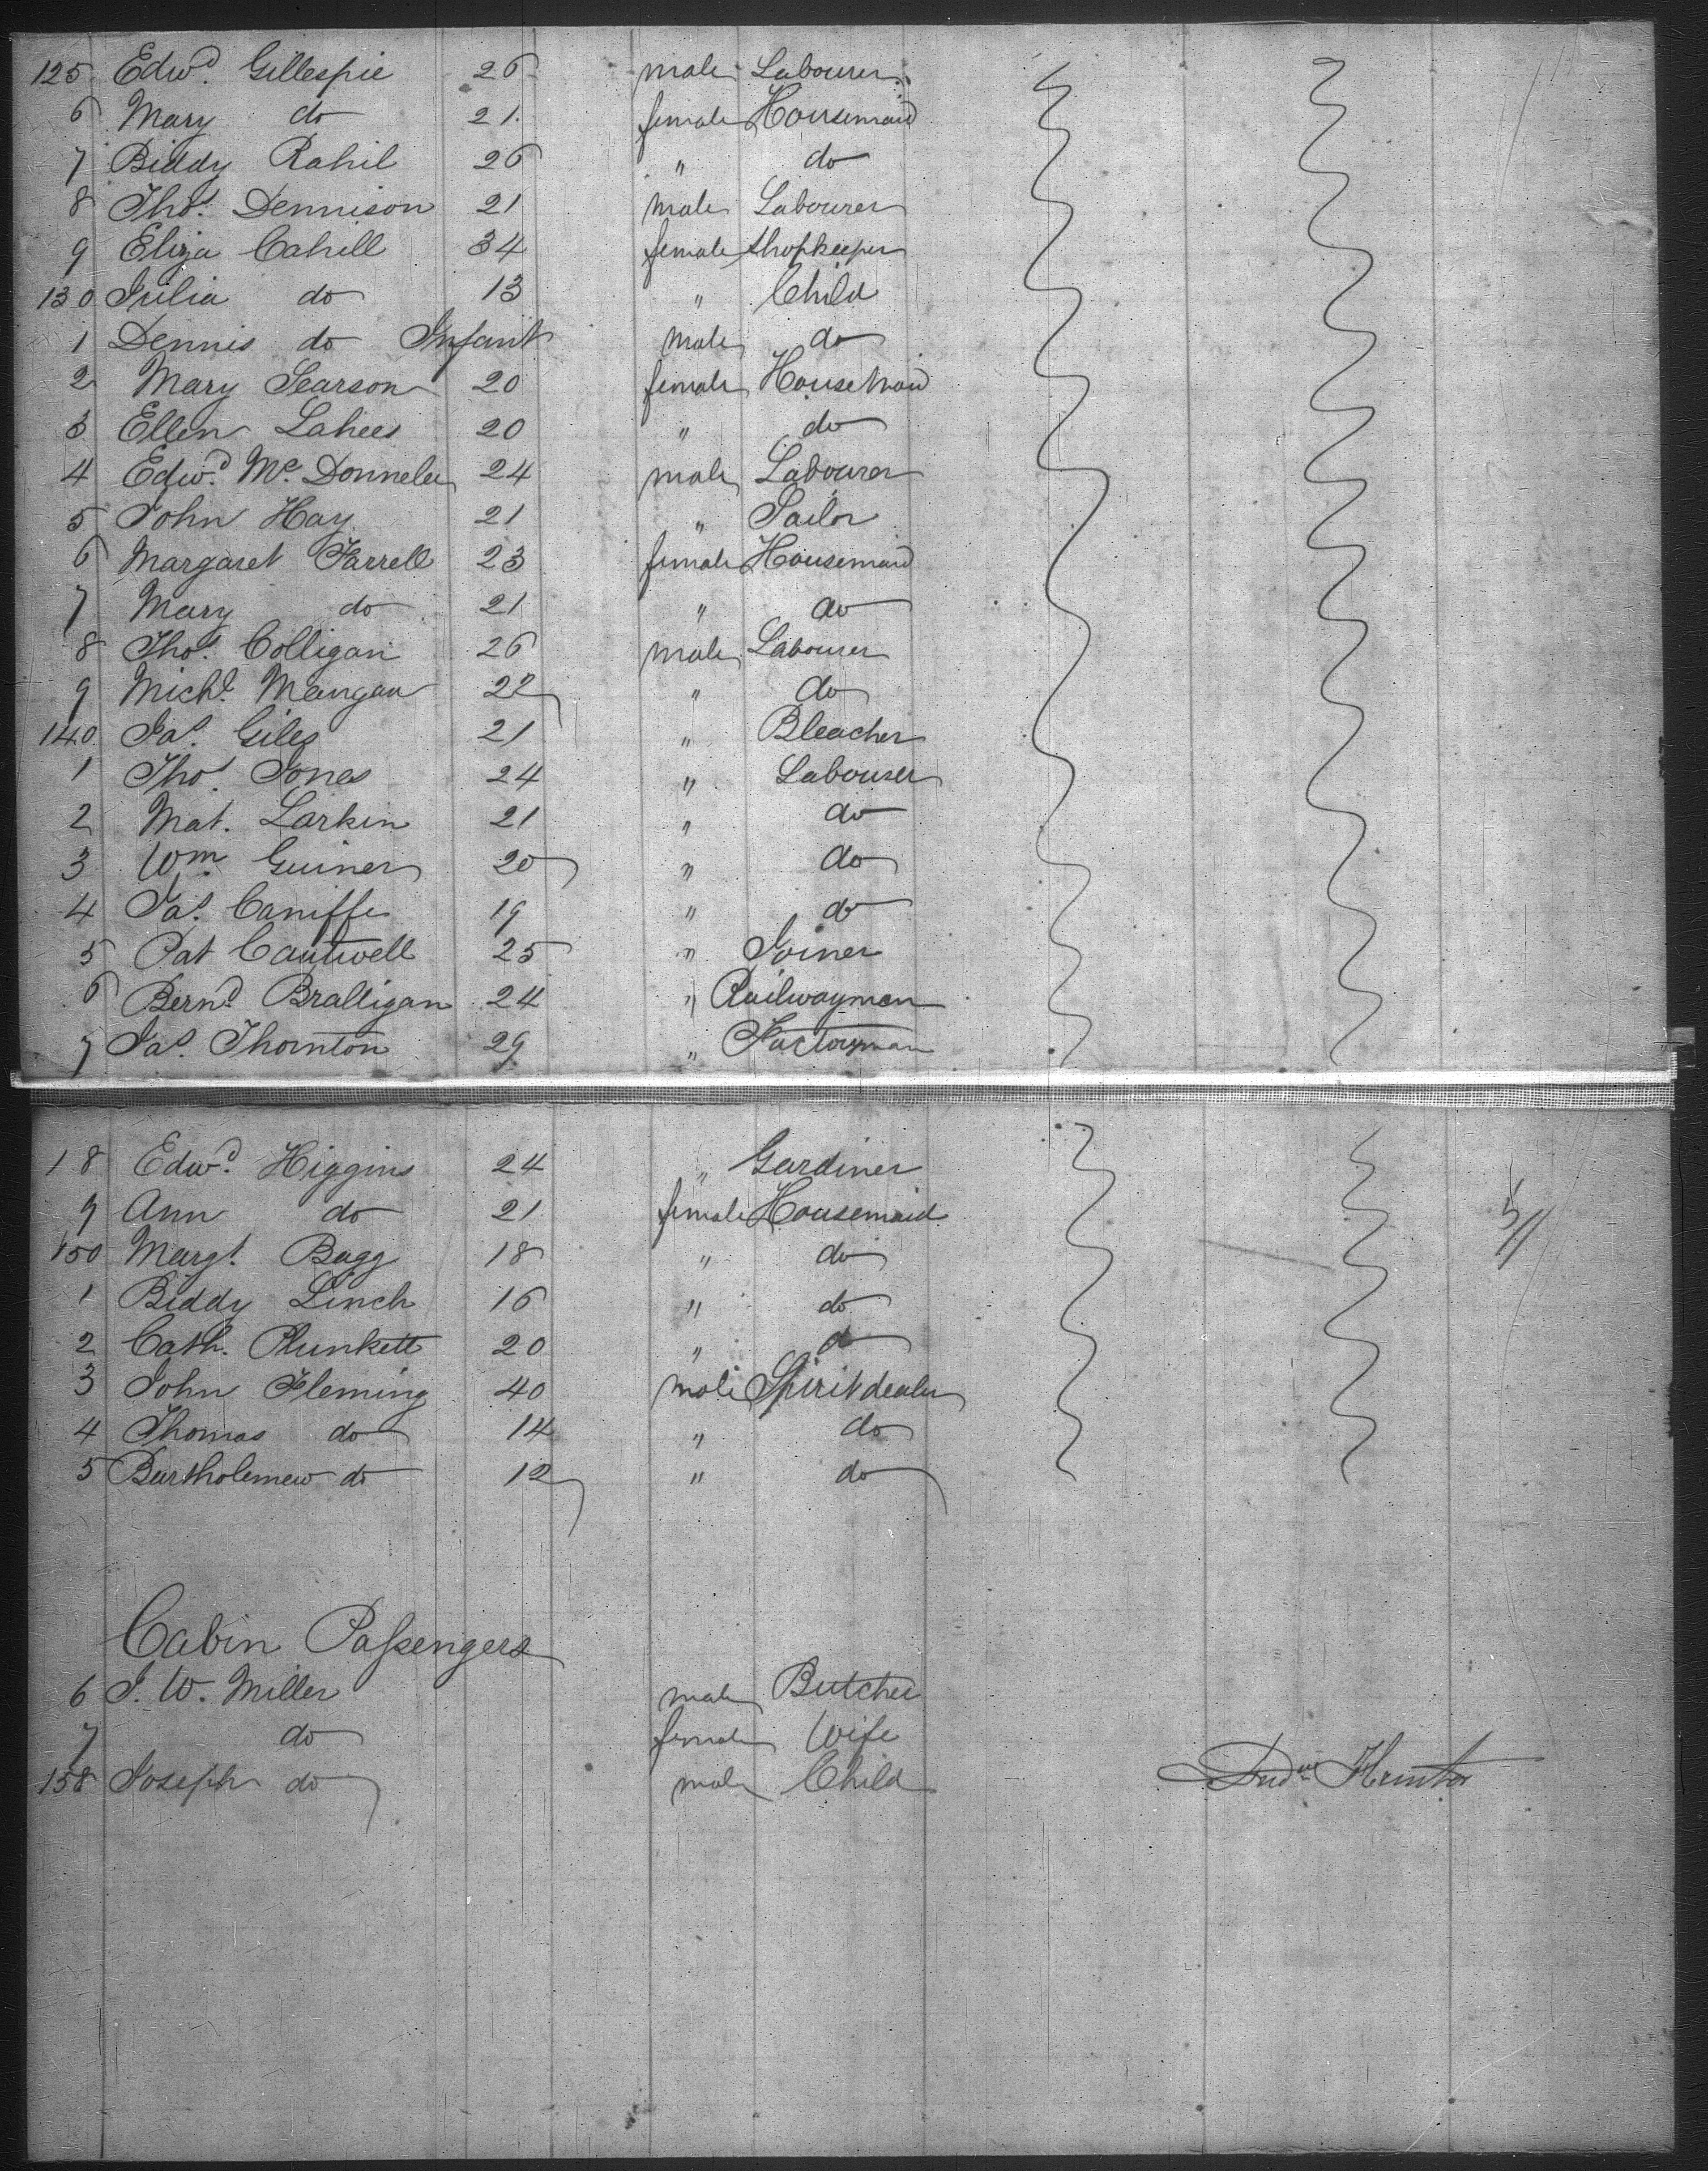 125 Edwd. Gillespie 26 male Labourer
6 Mary do 21 female Housemaid
7 Biddy Rahil 26 " do
8 Thos. Dennison 21 male Labourer
9 Eliza Cahill 34 female Shopkeeper
130 Julia do 13 " Child
1 Dennis do Infant male do
2 Mary Searson 20 female Housemaid
3 Ellen Lahees 20 " do
4 Edwd. Mc. Donnelu 24 male Labourer
5 John Hay 21 " Sailor
6 Margaret Farrell 23 female Housemaid
7 Mary do 21 " do
8 Thos. Colligan 26 male Labourer
9 Michl. Mangan 22 " do
140 Jas. Giles 21 " Bleacher
1 Thos. Jones 24 " Labourer
2 Mat. Larkin 21 " do
3 Wm. Guiner 20 " do
4 Jas. Caniffe 19 " do
5 Pat Cantwell 25 " Joiner
6 Bernd. Bralligan 24 " Railwayman
7 Jas. Thornton 29 " Factoryman
18 Edwd. Higgins 24 " Gardiner
9 Ann do 21 female Housemaid
150 Margt. Bagg 18 " do
1 Biddy Linch 16 " do
2 Cath. Plunkett 20 " do
3 John Fleming 40 male Spirit dealer
4 Thomas do 14 " do
5 Bartholemew do 12 " do
Cabin Passengers
6 J. W. Miller male Butcher
7 do female Wife
158 Joseph do male Child
Hunter